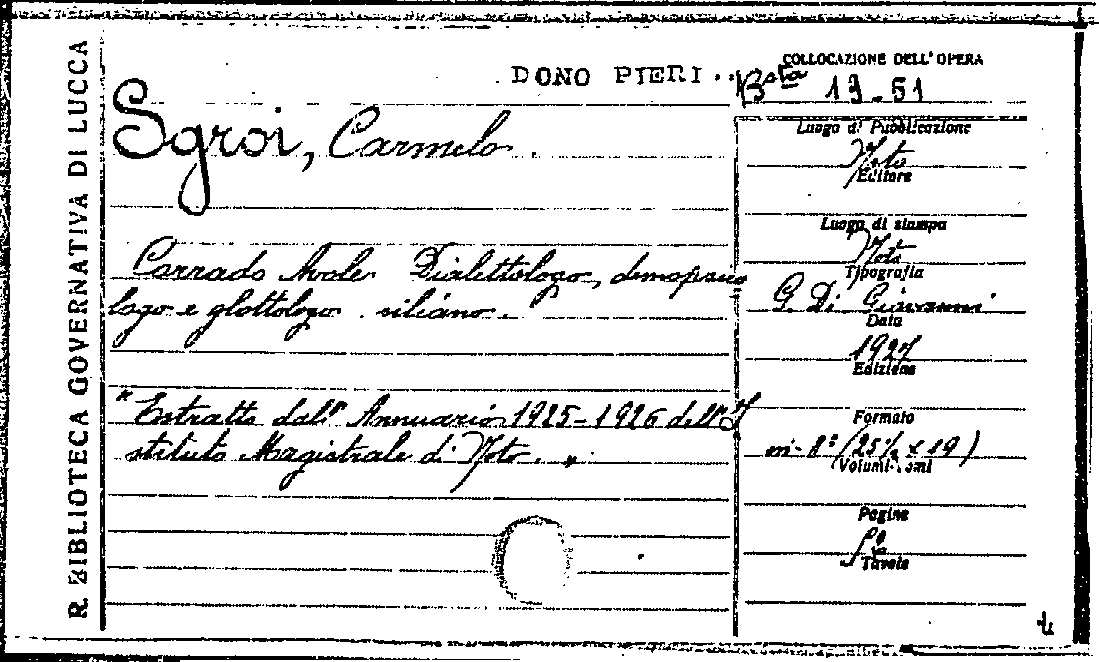 R. BIBLIOTECA GOVERNATIVA DI LUCCA
DONO PIERI
COLLOCAZIONE DELL' OPERA
Bsta 19-51
Sgroi, Carmelo.
Corrado Avoler Dialettologo, demopsico
logo e glottologo siliano.
"Estratto dall' Annuario 1925-1926 dell' I
stituto Magistrale di Noto. "
Luogo di Pubblicazione
Noto
Editore
Luogo di stampa
Noto
Tipografia
G. Di Giovanni
Data
1927
Edizione
Formato
in-8° (25½ x 19)
Volumi
Pagine
Tavole